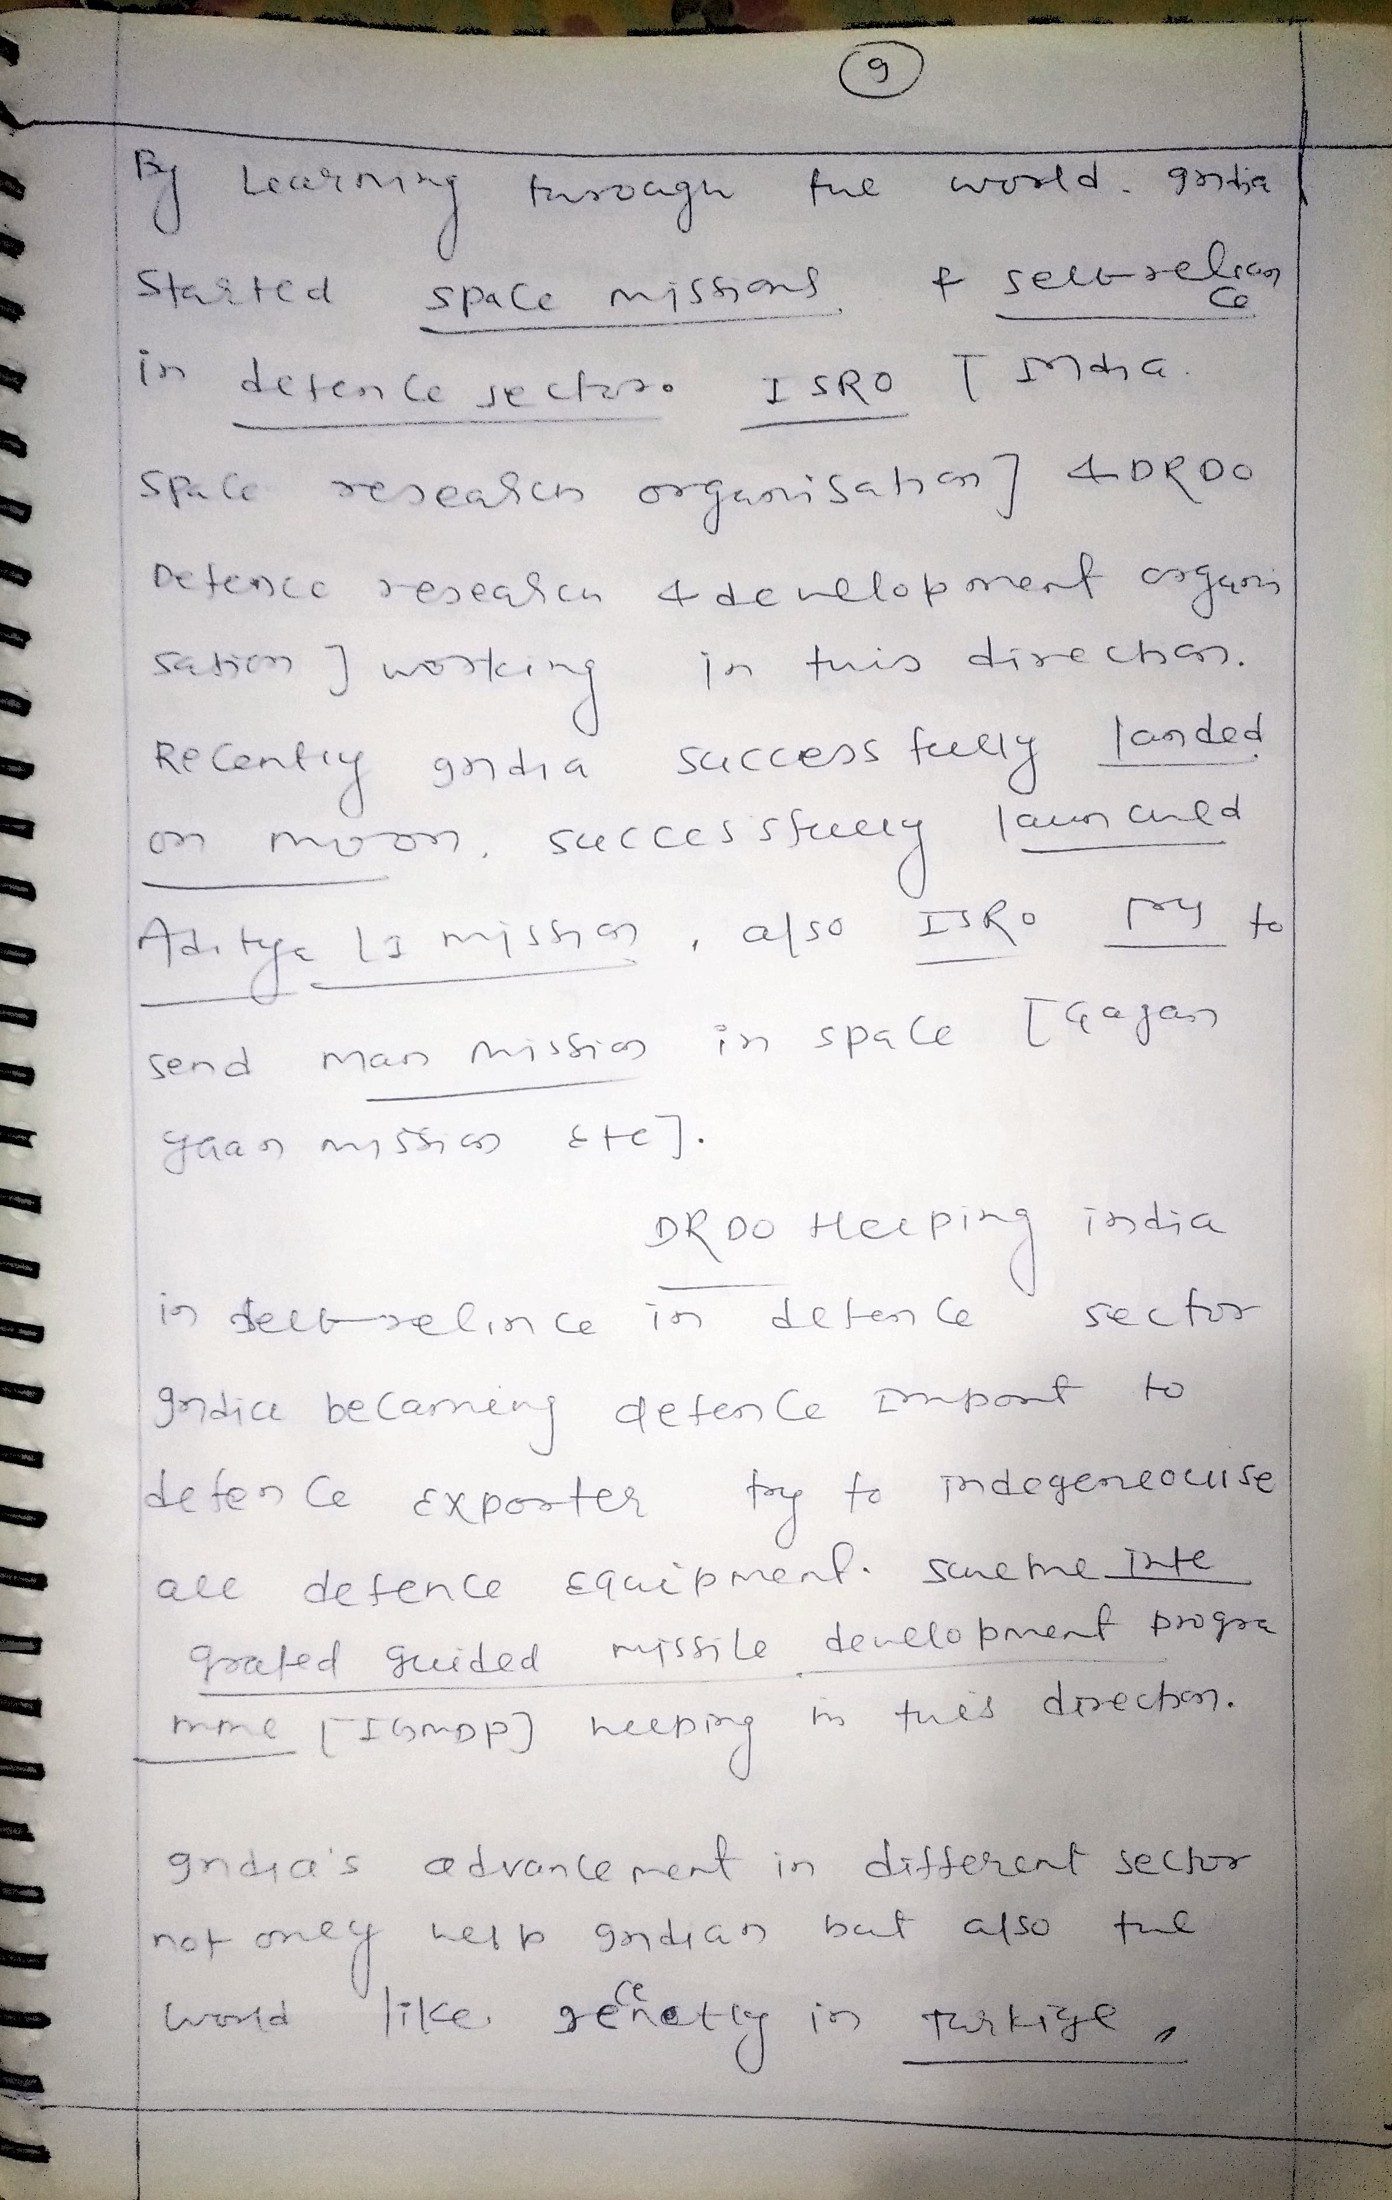 9
By Learning through the world. India
Started space missions & self-relian
ce
in defence sector. ISRO [India
space research organisation] & DRDO
Defence research & development organi
sation] working in this direction.
Recently India successfully landed
on moon, successfully launched
Aditya L1 mission, also ISRO try to
send man mission in space [Gagan
yaan mission etc].
DRDO Helping india
in self-relince in defence sector
India becameing defence import to
defence exporter try to indegeneouise
all defence equipment. Scheme Inte
grated guided missile development progra
mme [IGMDP] helping in this direction.
India's advancement in different sector
not only help Indian but also the
world like recently in Turkiye,